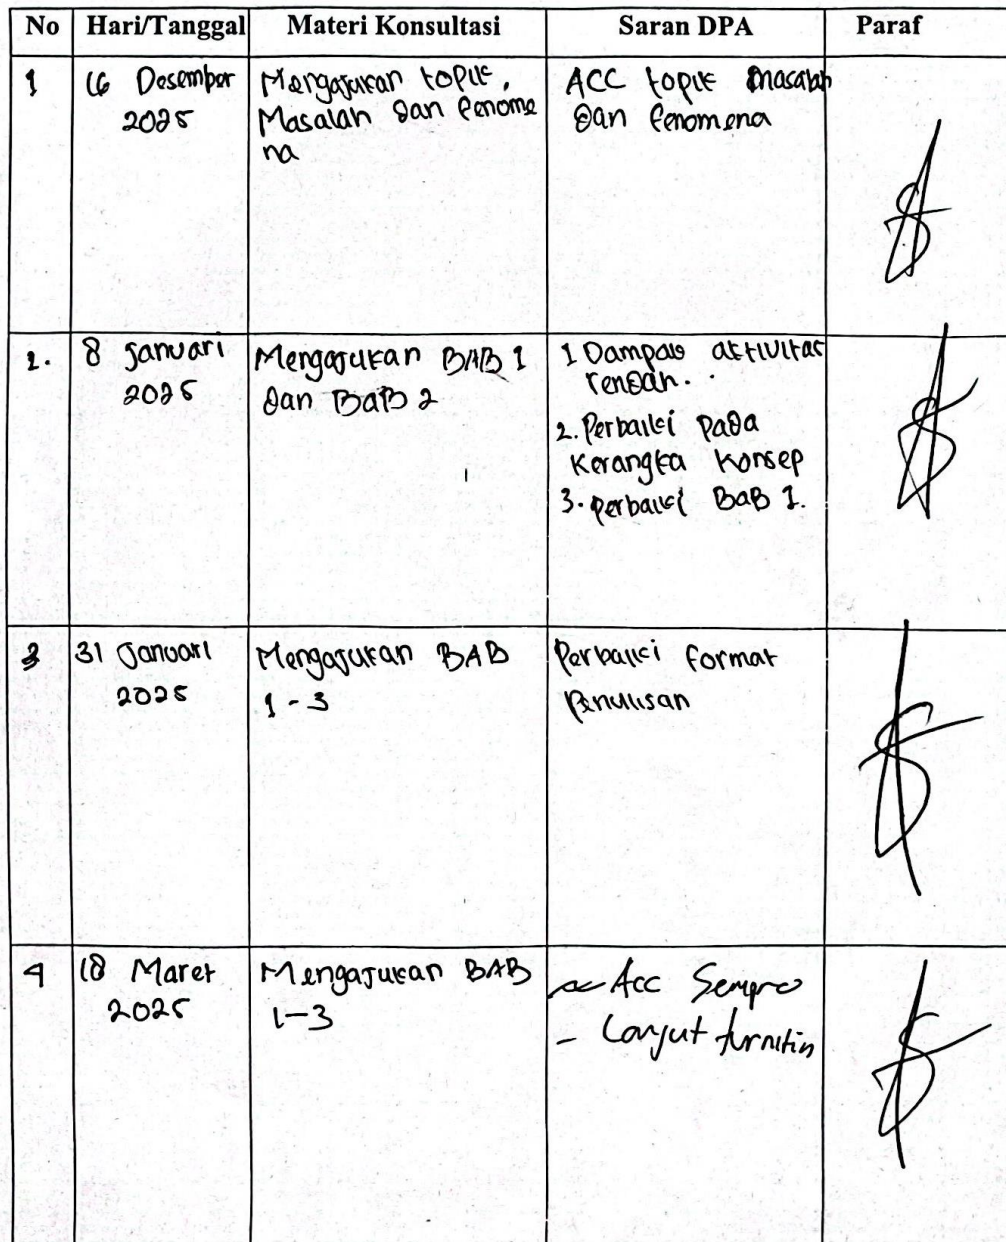 No Hari/Tanggal Materi Konsultasi Saran DPA Paraf
1 16 Desember
2025
Mengajukan topik,
Masalah dan fenome
na
ACC topik masalah
dan fenomena
2. 8 Januari
2025
Mengajukan BAB 1
dan BAB 2
1 Dampak aktivitas
rendah.
2. Perbaiki pada
Kerangka Konsep
3. perbaiki BAB 1.
3 31 Januari
2025
Mengajukan BAB
1 - 3
Perbaiki format
Penulisan
4 18 Maret
2025
Mengajukan BAB
1-3
Acc Sempro
- Lanjut turnitin